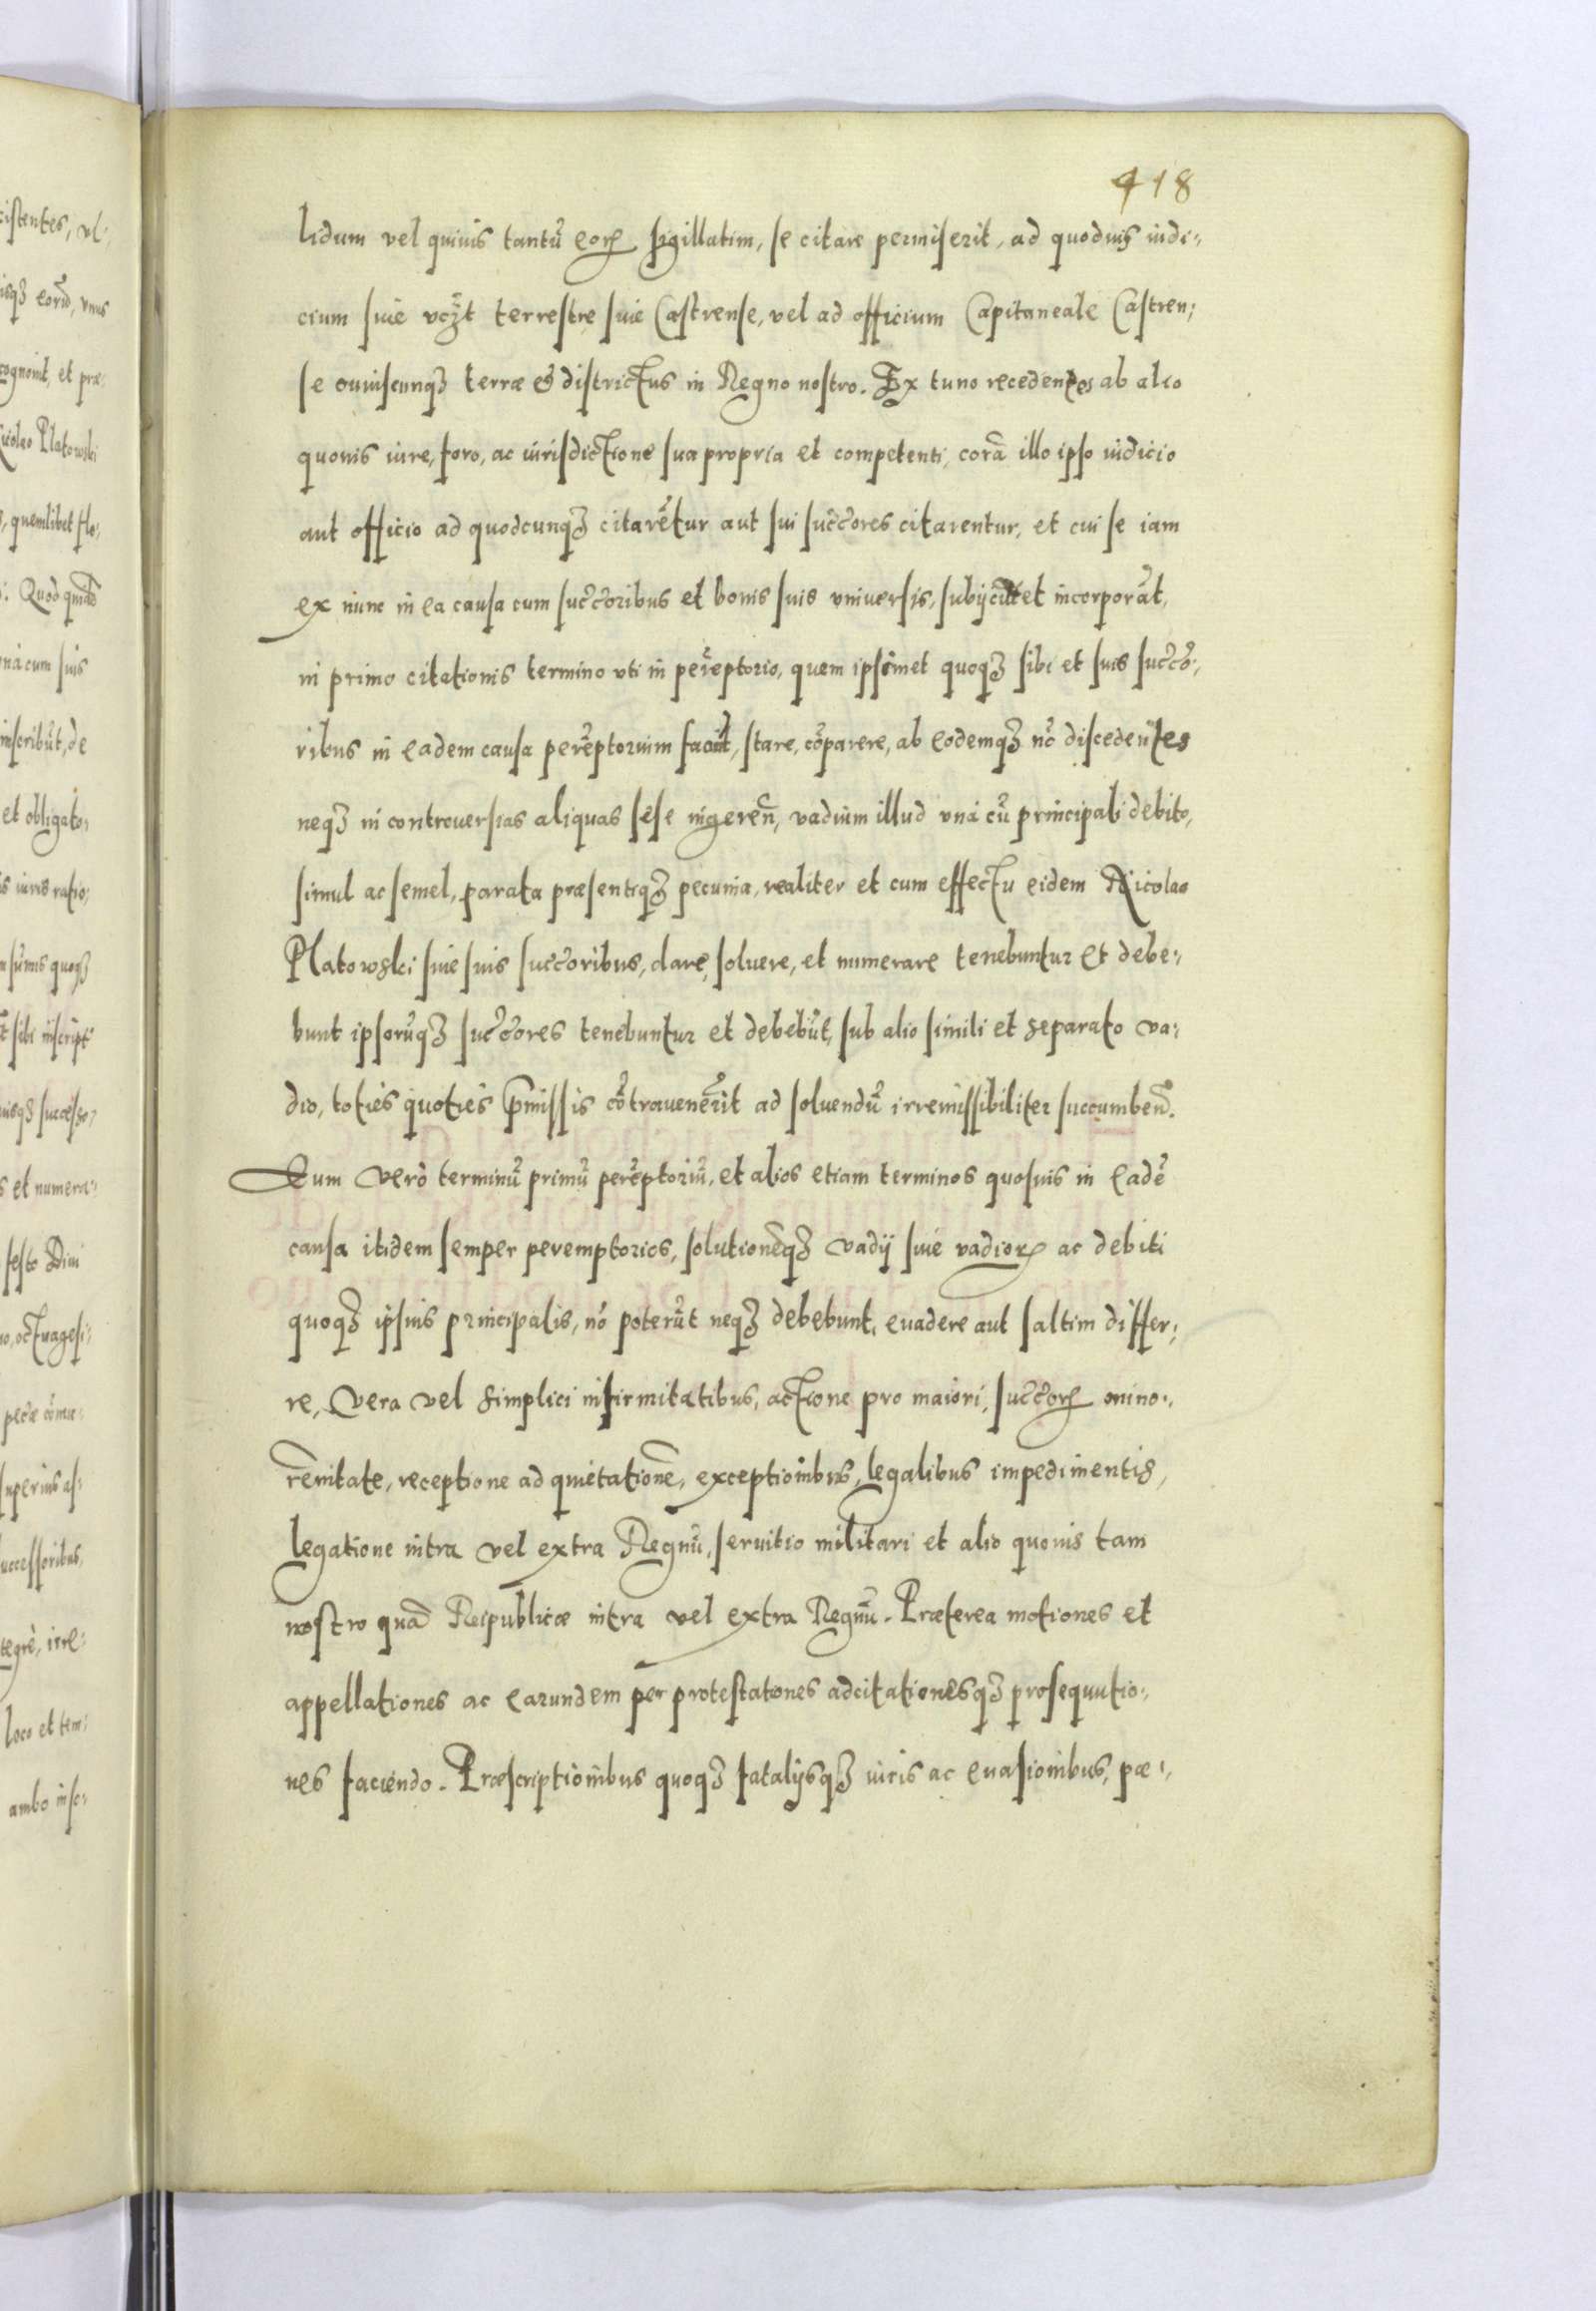 418
lidum vel quiuis tantū eorꝝ sigillatim, se citare permiserit, ad quoduis iudi-
cium siue vcꝫt terrestre siue Castrense, vel ad officium Capitaneale Castren-
se cuiuscunqꝫ terræ & districtus in Regno nostro. Ex tunc recedentes ab alio
quouis iure, foro, ac iurisdictione sua propria et competenti, corā illo ipso iudicio
aut officio ad quodcunqꝫ citarētur aut sui succōres citarentur, et cui se iam
ex nunc in ea causa cum succōribus et bonis suis vniuersis, subijciūt et incorporāt,
in primo citationis termino vti in perēptorio, quem ipsimet quoqꝫ sibi et suis succō-
ribus in eadem causa perēptorium faciūt, stare, cōparere, ab eodemqꝫ nō discedentes
neqꝫ in controuersias aliquas sese ingereñ, vadium illud vnà cū principali debito,
simul ac semel, parata præsentiqꝫ pecunia, realiter et cum effectu eidem Nicolao
Platowski siue suis succōribus, dare, soluere, et numerare tenebuntur et debe-
bunt ipsorūqꝫ succōres tenebuntur et debebūt, sub alio simili et separato va-
dio, toties quoties p̄missis cōtrauenērit ad soluendū irremissibiliter succumbeñ.
Eum verò terminū primū perēptoriū, et alios etiam terminos quosuis in eadē
causa itidem semper peremptorios, solutionēqꝫ vadij siue vadiorꝝ ac debiti
quoqꝫ ipsius principalis, nō poterūt neqꝫ debebunt, euadere aut saltim differ-
re, Vera vel simplici infirmitatibus, actione pro maiori, succōrꝝ mino-
rēnitate, receptione ad quietationē, exceptionibus, legalibus impedimentis,
legatione intra vel extra Regnū, seruitio militari et alio quouis tam
nostro quā Reipublicæ intra vel extra Regnū. Præterea motiones et
appellationes ac earundem per protestationes adcitationesqꝫ prosequutio-
nes faciendo. Præscriptionibus quoqꝫ fatalijsqꝫ iuris ac euasionibus, pæ-